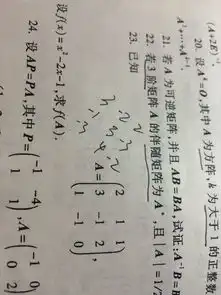 (A+2E)⁻¹
20. 设 Aᵏ=0, 其中 A 为方阵, k 为大于 1 的正整数
A²+⋯+Aᵏ⁻¹.
21. 若 A 为可逆矩阵, 并且 AB=BA, 试证: A⁻¹B=B
22. 若 3 阶矩阵 A 的伴随矩阵为 A*, 且 |A|=1/2
23. 已知
A=(2 1 1
3 -1 2
1 -1 0),
设 f(x)=x²-2x-1, 求 f(A).
24. 设 AP=PA, 其中 P=(-1 -4
1 1), Λ=(-1 0
0 2)